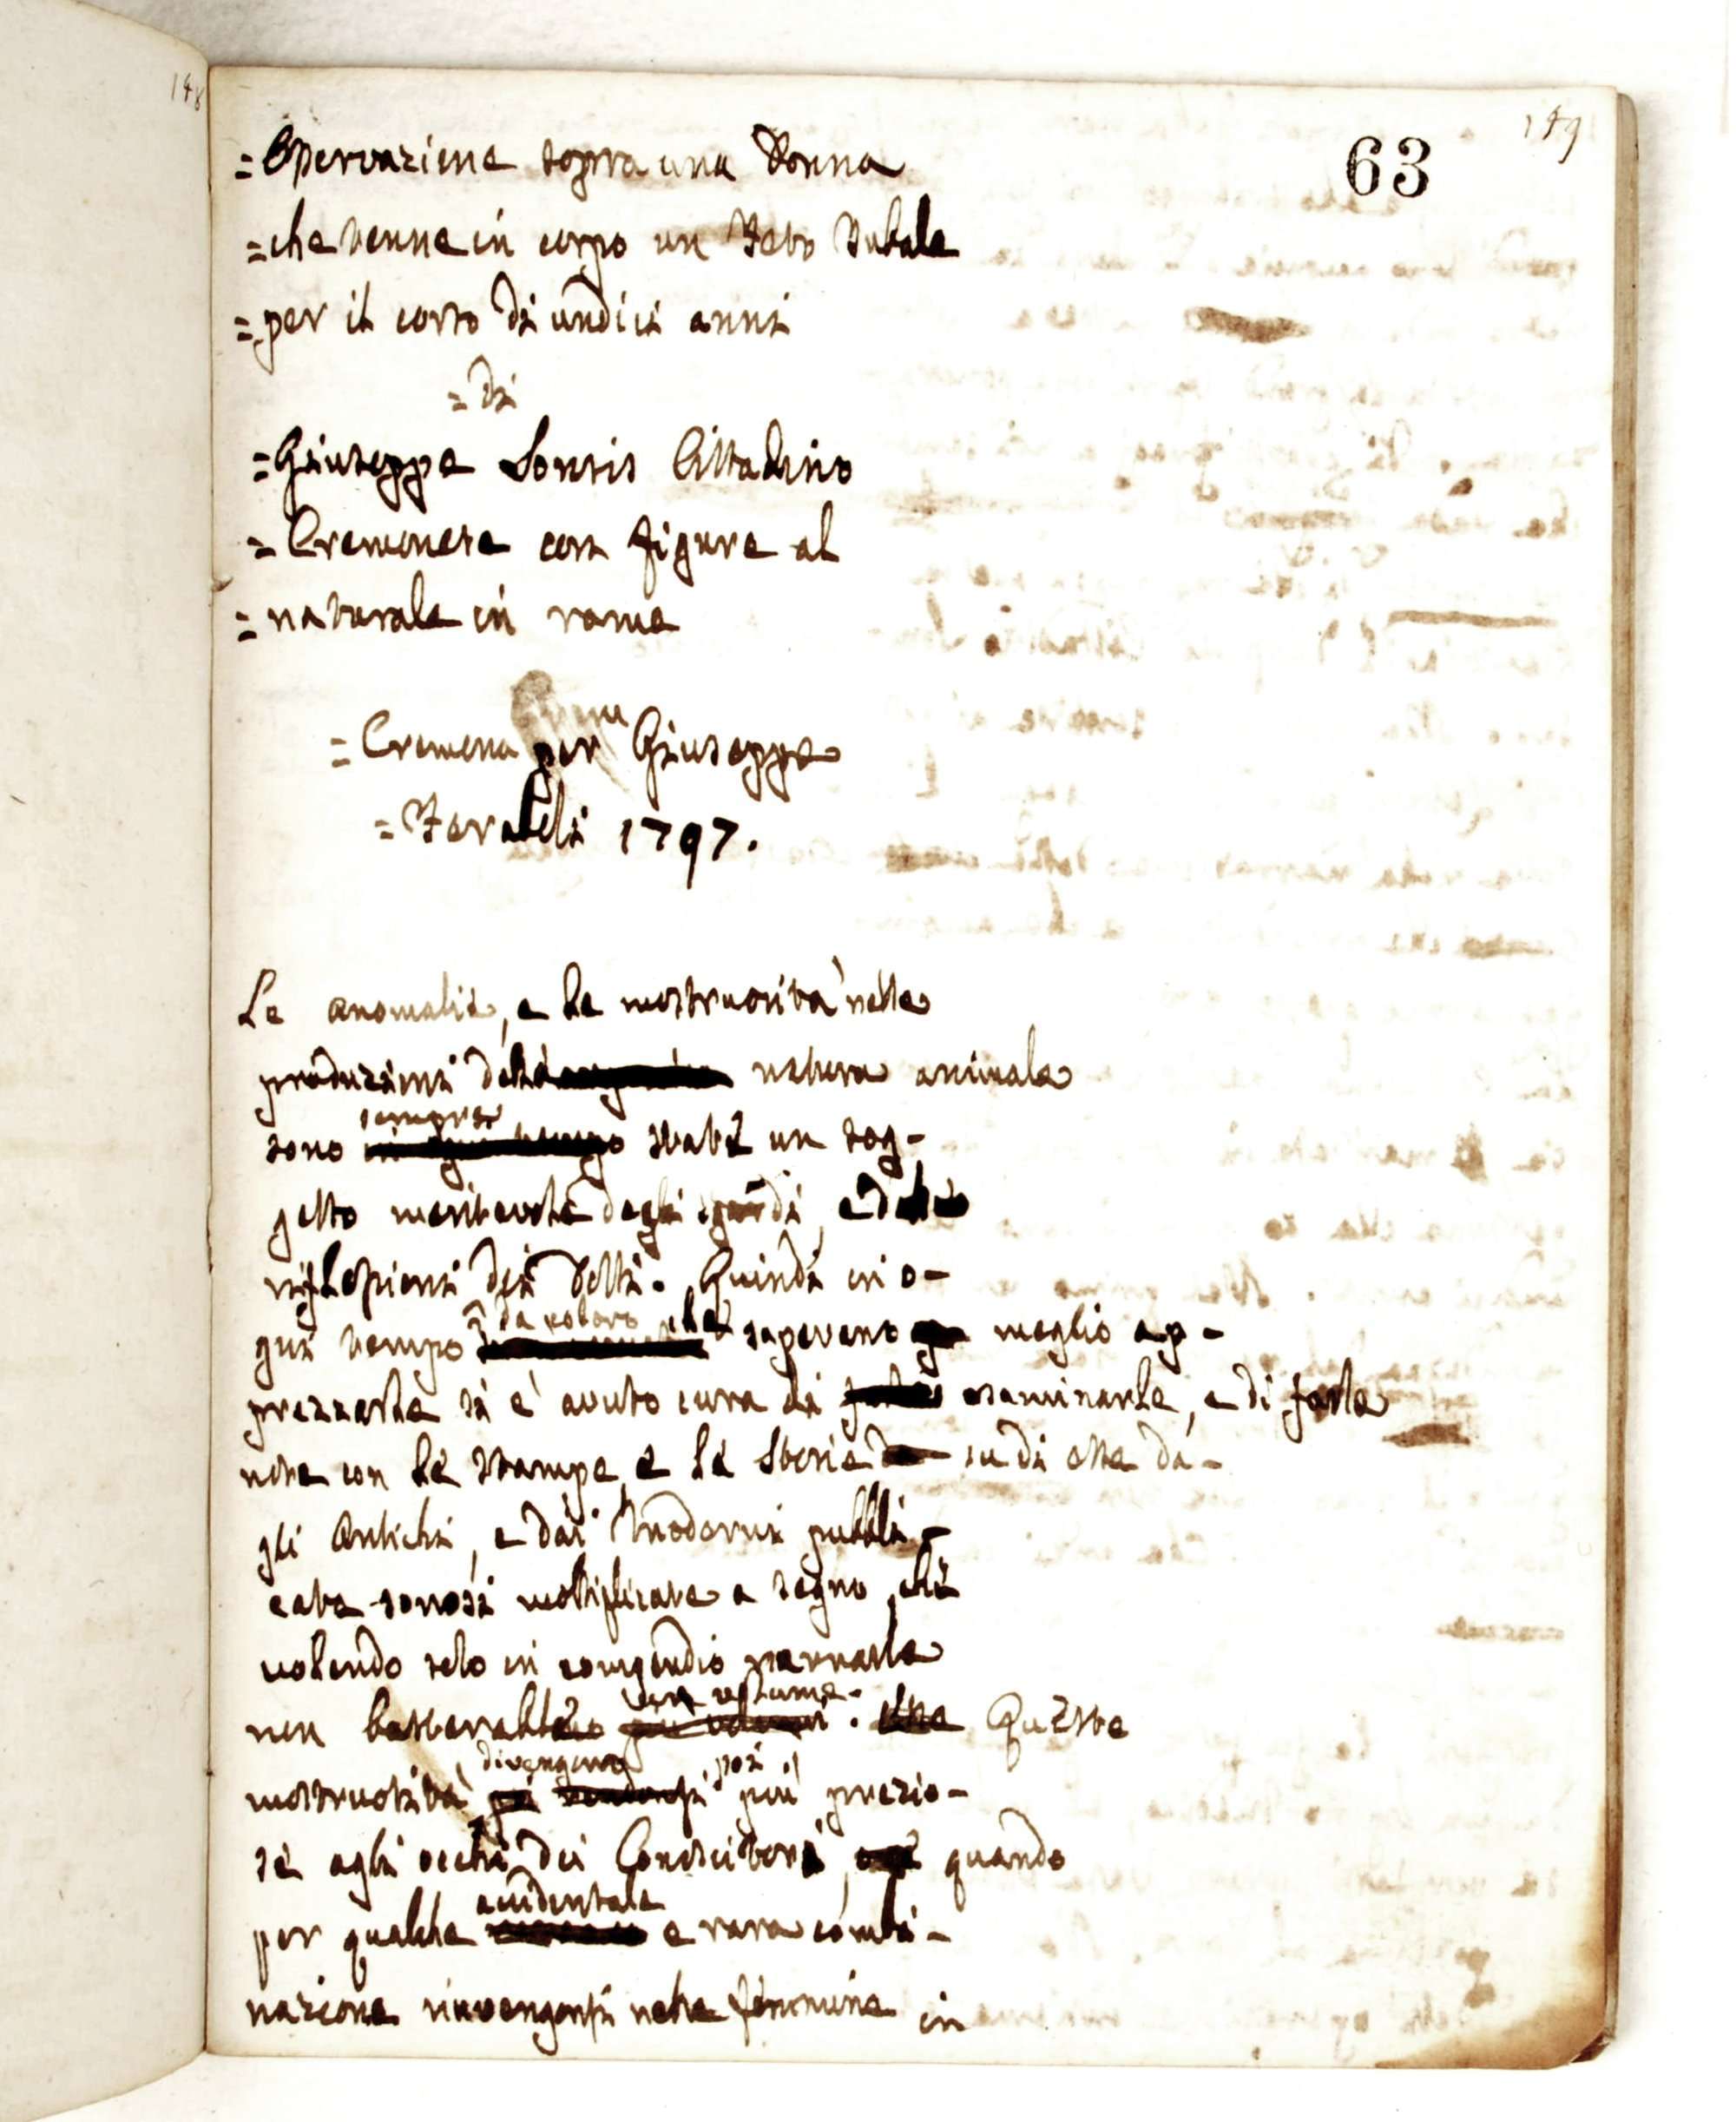 148
149
63
= Osservazione sopra una Donna
= che tenne in corpo un Feto Tubale
= per il corso di undici anni
= di
= Giuseppe Sonsis Cittadino
= Cremonese con figure al
= naturale in rame
= Cremona per Giuseppe
= Feraboli 1797.
Le anomalie, e le mostruosità nelle
produzioni della natura animale
sempre
sono state un sog-
getto meritevole degli sguardi, e delle
riflessioni dei Dotti. Quindi in o-
da coloro che
gni tempo sapevano meglio ap-
prezzarle si è avuto cura di esaminarle, e di farle
note con le stampe e le Storie su di esse da-
gli Antichi, e dai Moderni pubbli-
cate sonosi moltiplicate a segno, che
volendo solo in compendio narrarle
un volume.
non basterebbe Queste
divengono poi
mostruosità più prezio-
se agli occhi dei Conoscitori, quando
accidentale
per qualche e rara combi-
nazione rinvengonsi nelle femmine in